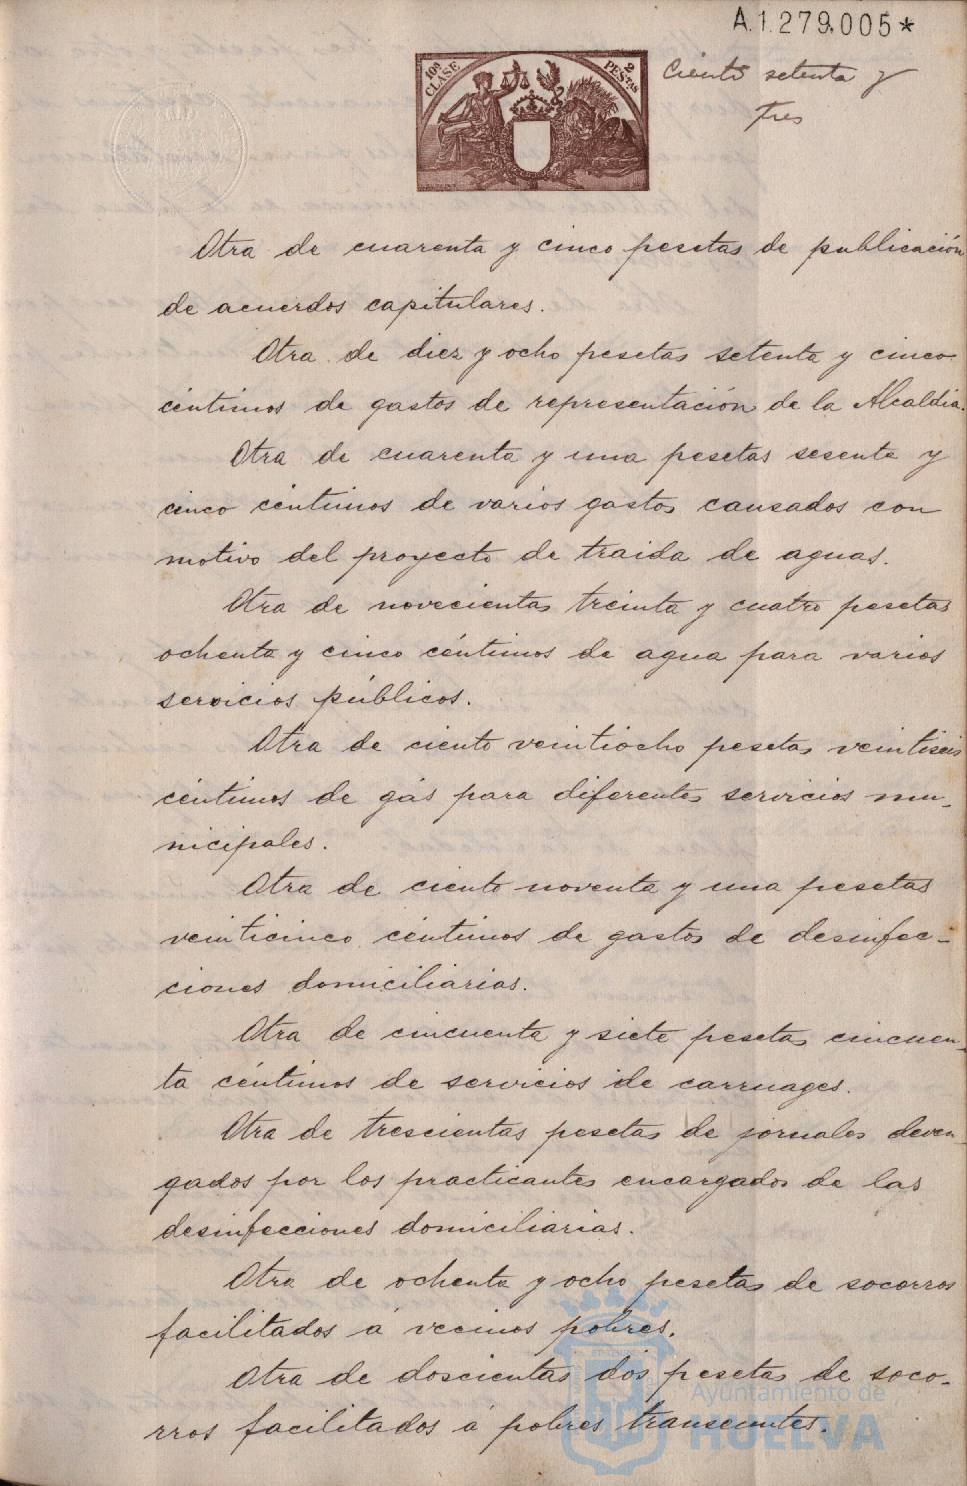 A.1.279.005*
10ª CLASE
2 PESTAS
Ciento setenta y
tres
Otra de cuarenta y cinco pesetas de publicación
de acuerdos capitulares.
Otra de diez y ocho pesetas setenta y cinco
céntimos de gastos de representación de la Alcaldia.
Otra de cuarenta y una pesetas sesenta y
cinco céntimos de varios gastos causados con
motivo del proyecto de traida de aguas.
Otra de novecientas treinta y cuatro pesetas
ochenta y cinco céntimos de agua para varios
servicios públicos.
Otra de ciento veintiocho pesetas veintiseis
céntimos de gás para diferentes servicios mu-
nicipales.
Otra de ciento noventa y una pesetas
veinticinco céntimos de gastos de desinfec-
ciones domiciliarias.
Otra de cincuenta y siete pesetas cincuen-
ta céntimos de servicios de carruages.
Otra de trescientas pesetas de jornales deven-
gados por los practicantes encargados de las
desinfecciones domiciliarias.
Otra de ochenta y ocho pesetas de socorros
facilitados á vecinos pobres.
Otra de doscientas dos pesetas de soco-
rros facilitados á pobres transeuntes.
Ayuntamiento de
HUELVA